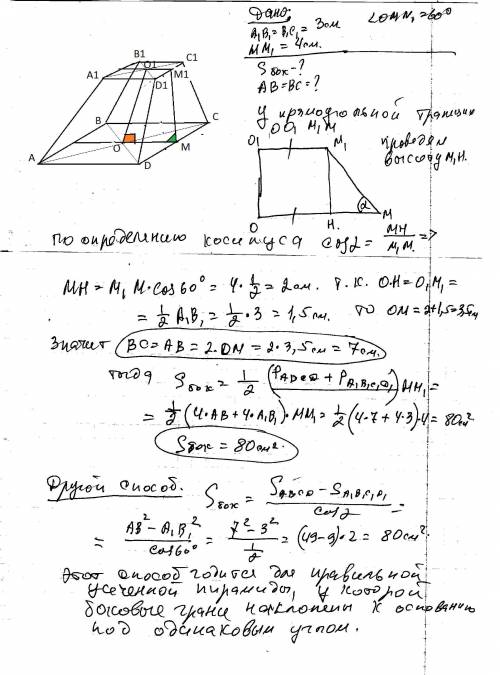 Дано:
A₁B₁ = B₁C₁ = 3см ∠OMM₁ = 60°
MM₁ = 4см.
Sбок - ?
AB = BC = ?
B1 C1
O1
A1 M1
D1
B C
O M
A D
У прямоугольной трапеции
OO₁M₁M проведем
высоту M₁H.
O₁ M₁
α
O H. M
По определению косинуса cos α = MH/M₁M. =>
MH = M₁M · cos 60° = 4 · 1/2 = 2см. Т.к. OH = O₁M₁ =
= 1/2 A₁B₁ = 1/2 · 3 = 1,5см. то OM = 2+1,5 = 3,5см
Значит BC = AB = 2 · OM = 2 · 3,5см = 7см.
тогда Sбок = 1/2 (PABCD + PA₁B₁C₁D₁) MM₁ =
= 1/2 (4 · AB + 4 · A₁B₁) · MM₁ = 1/2 (4 · 7 + 4 · 3) · 4 = 80см²
Sбок = 80см².
Другой способ. Sбок = (SABCD - SA₁B₁C₁D₁)/cos α =
= (AB² - A₁B₁²)/cos 60° = (7² - 3²)/(1/2) = (49 - 9) · 2 = 80см².
Этот способ годится для правильной
усеченной пирамиды, у которой
боковые грани наклонены к основанию
под одинаковым углом.